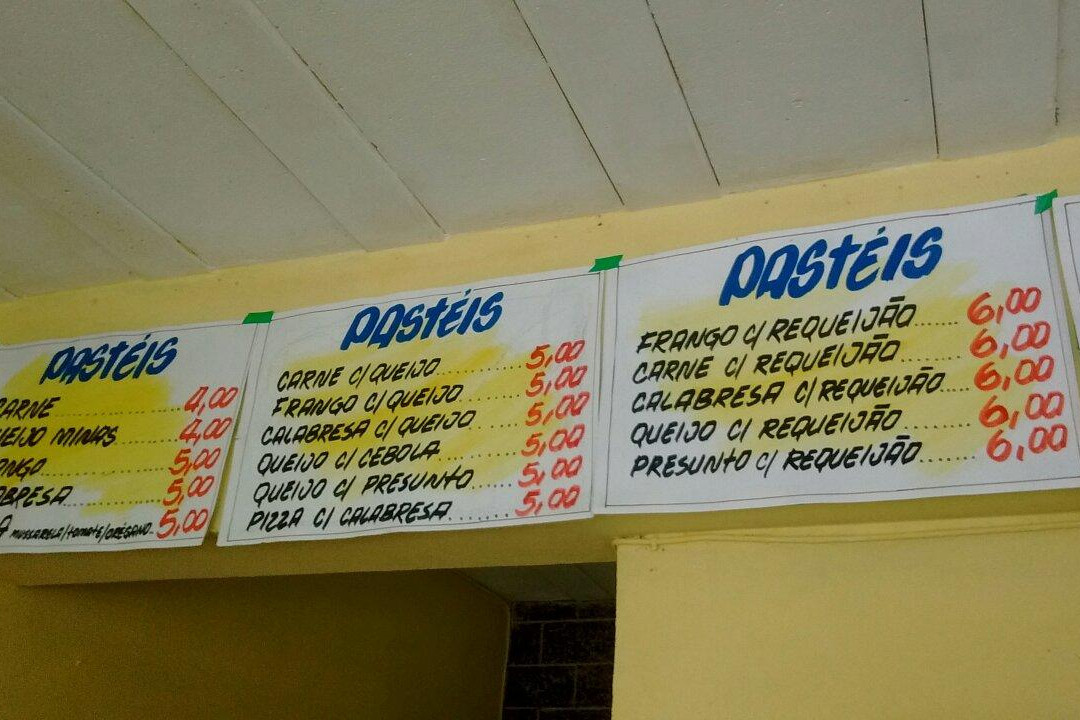 PASTÉIS
CARNE ........ 4,00
QUEIJO MINAS ........ 4,00
........ 5,00
........ 5,00
MUSSARELA/TOMATE/ORÉGANO.. 5,00
PASTÉIS
CARNE C/ QUEIJO ........ 5,00
FRANGO C/ QUEIJO ........ 5,00
CALABRESA C/ QUEIJO ........ 5,00
QUEIJO C/ CEBOLA ........ 5,00
QUEIJO C/ PRESUNTO ........ 5,00
PIZZA C/ CALABRESA ........ 5,00
PASTÉIS
FRANGO C/ REQUEIJÃO ...... 6,00
CARNE C/ REQUEIJÃO ........ 6,00
CALABRESA C/ REQUEIJÃO .... 6,00
QUEIJO C/ REQUEIJÃO ........ 6,00
PRESUNTO C/ REQUEIJÃO ...... 6,00